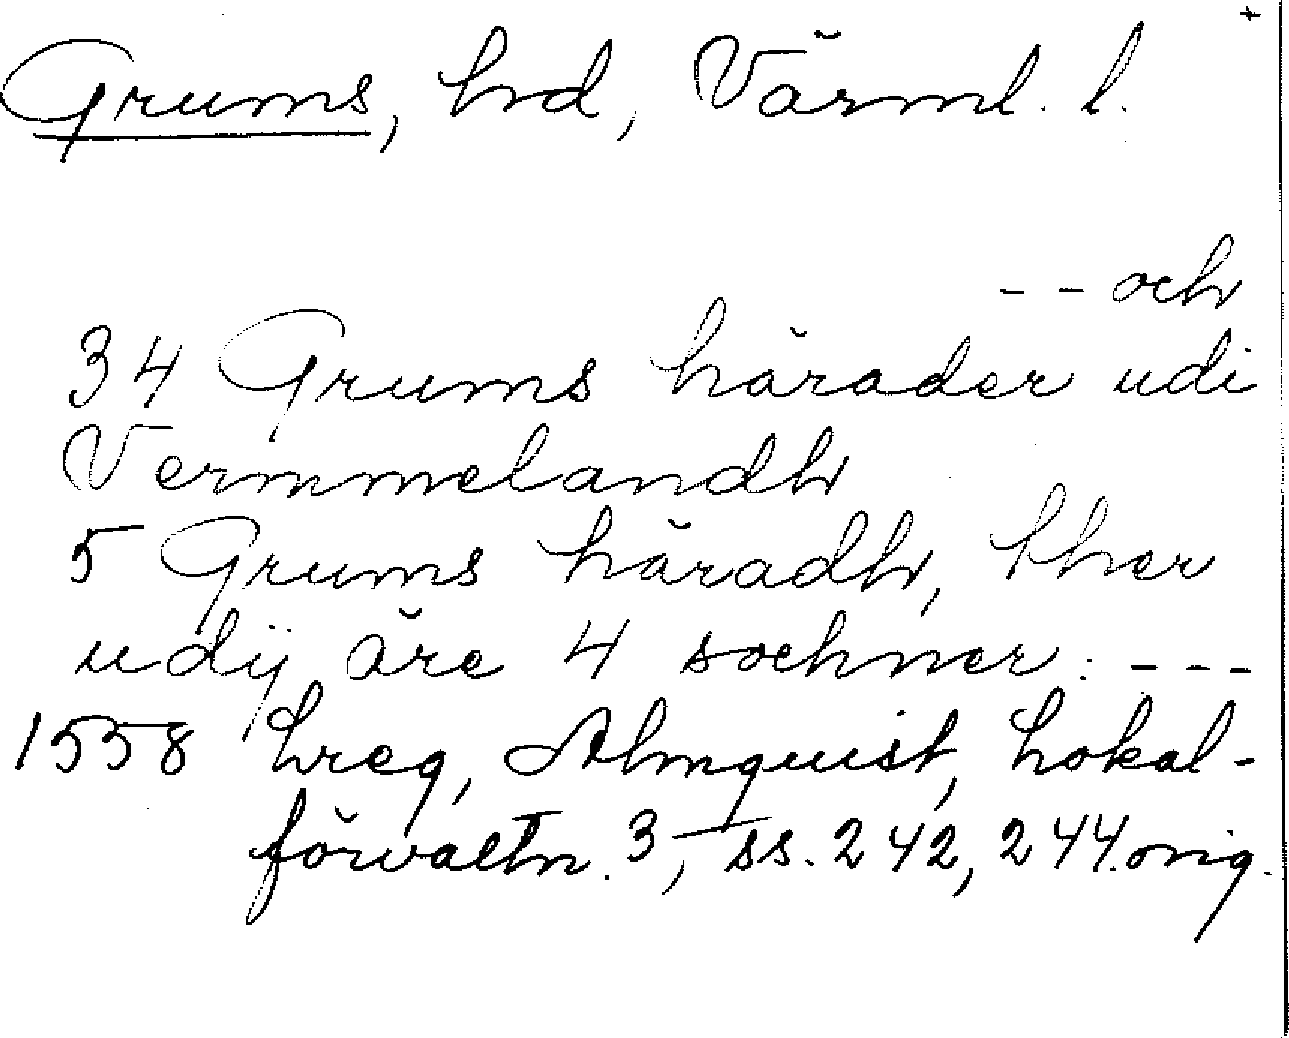 +
Grums, hd, Värml. l.
-- och
34 Grums härader udi
Vermmelandh
5 Grums häradh, ther
udij äre 4 sochner: ---
1558 hreg, Almquist, Lokal-
förvaltn. 3, ss. 242, 244. orig.